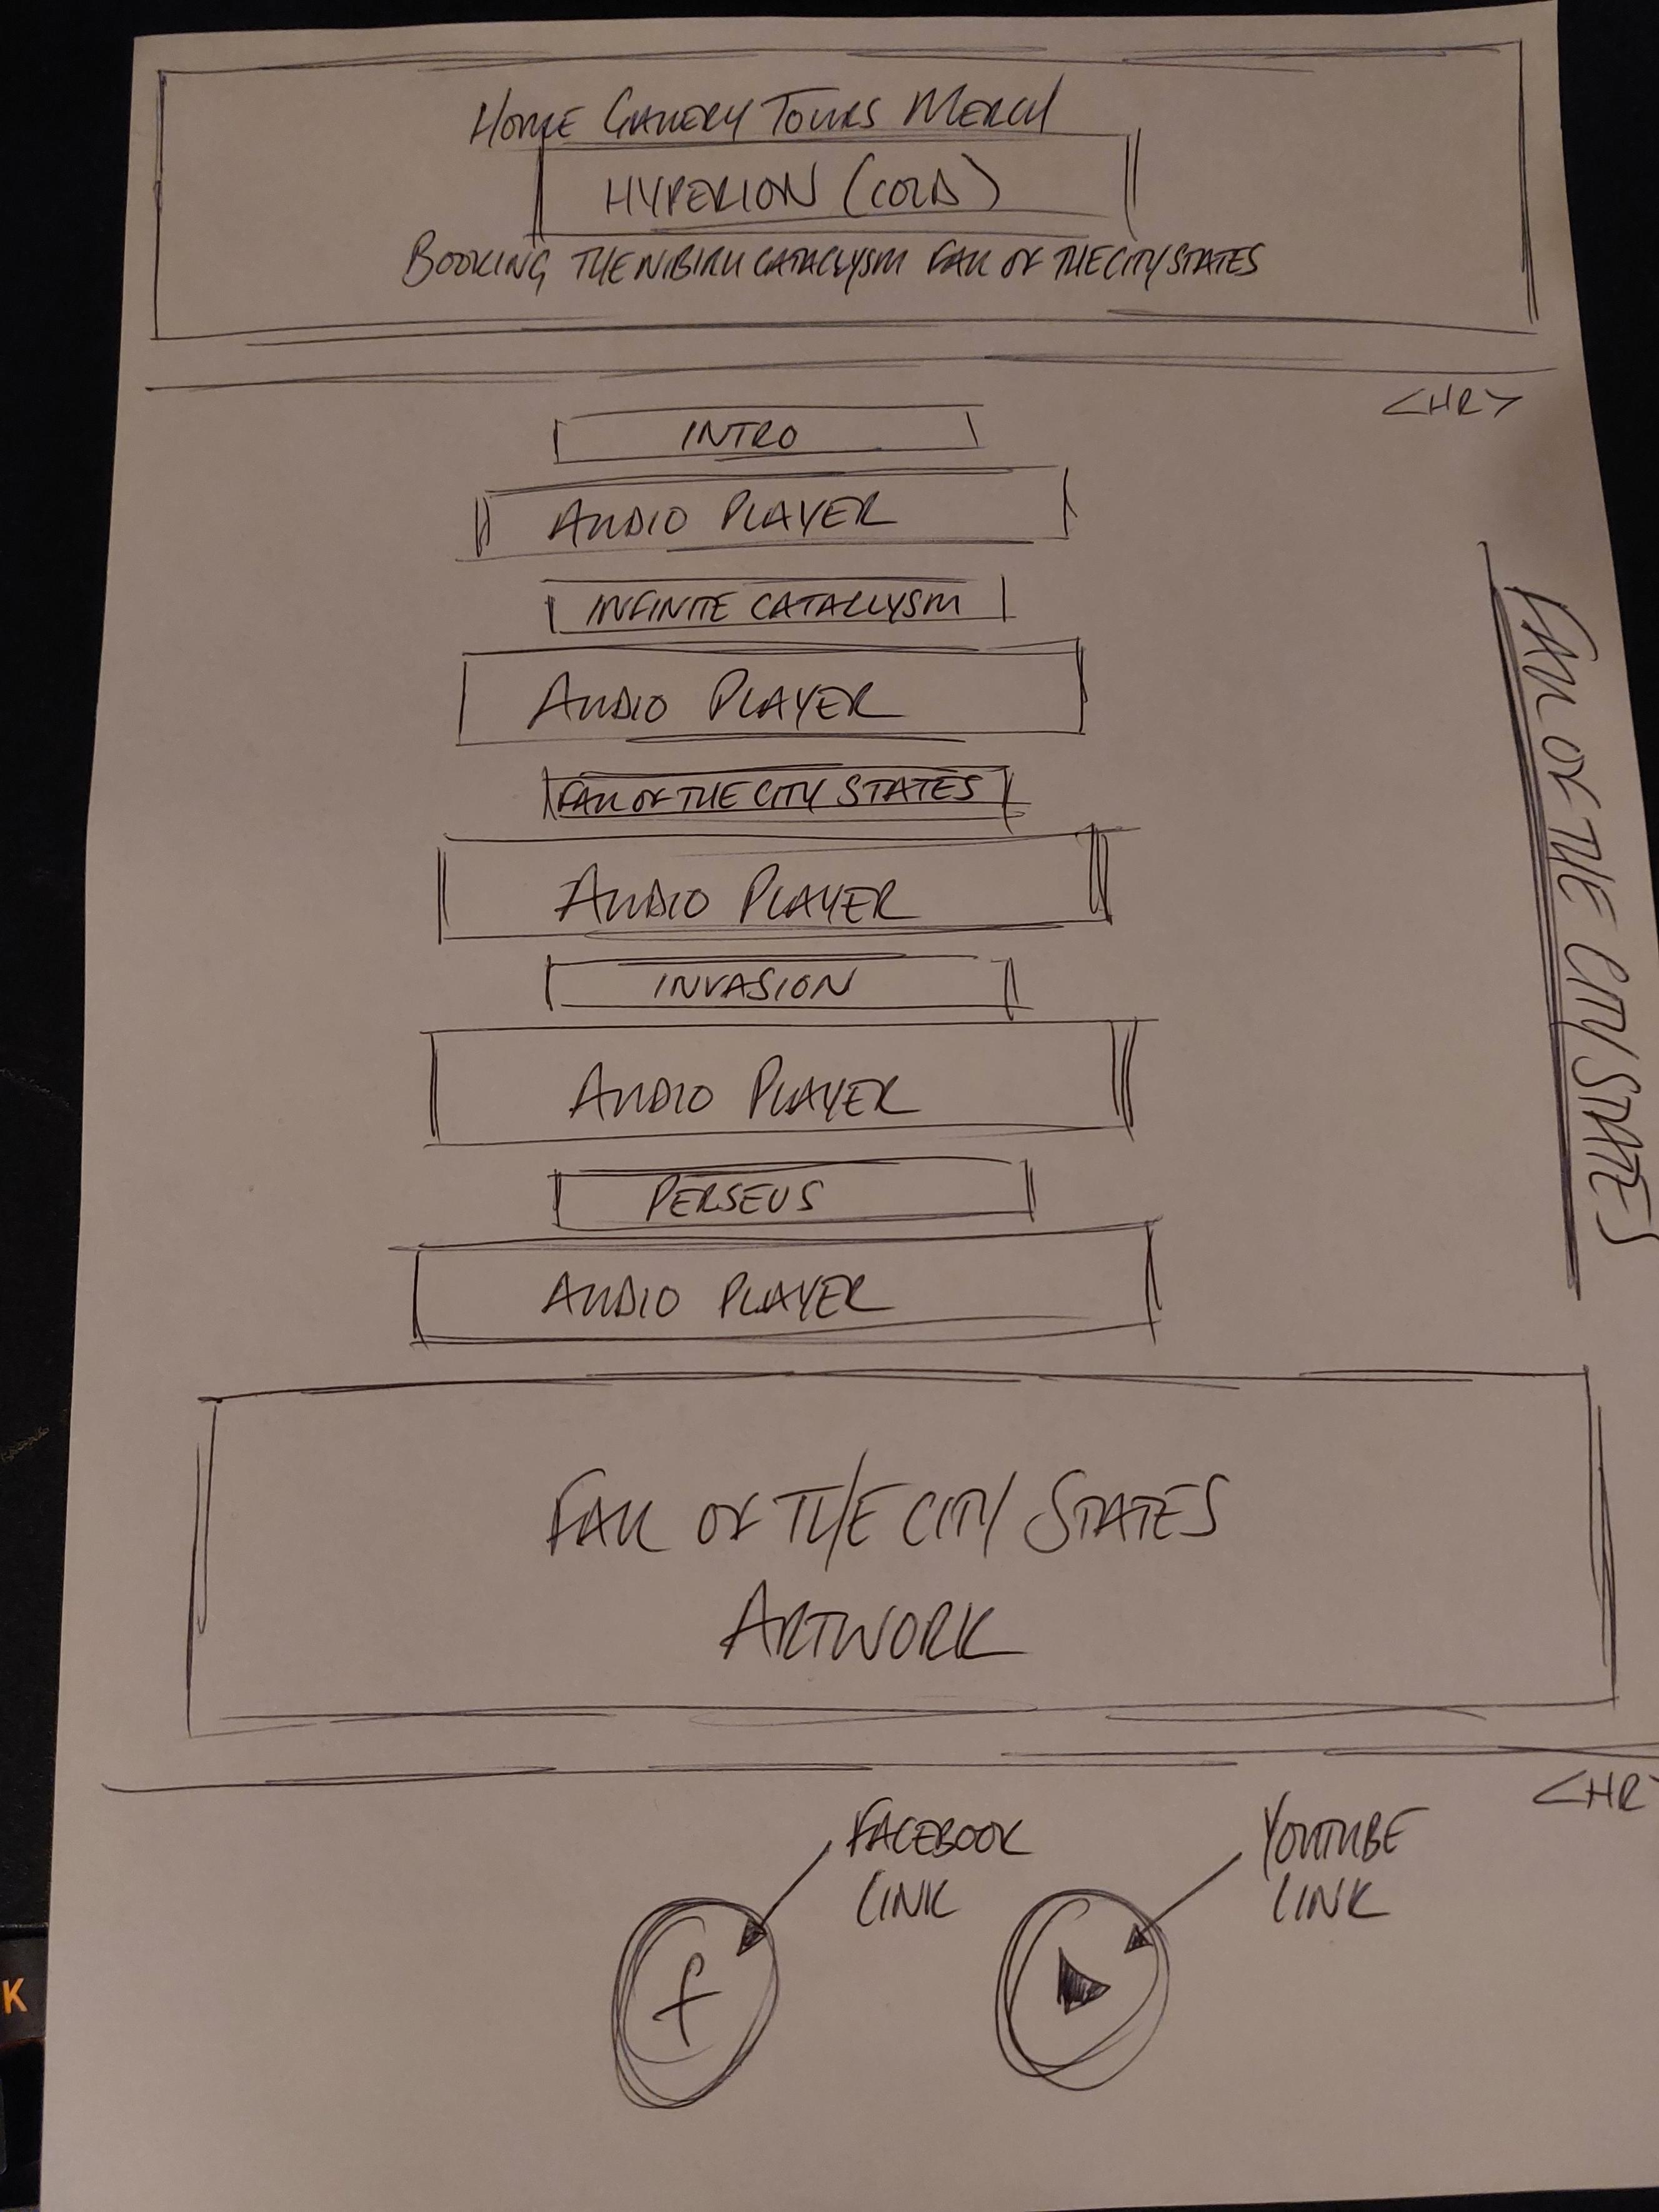 HOME GALLERY TOURS MERCH
HYPERION (COLD)
BOOKING THE NIBIRU CATACLYSM FALL OF THE CITY STATES
<HR>
INTRO
AUDIO PLAYER
INFINITE CATACLYSM
AUDIO PLAYER
FALL OF THE CITY STATES
AUDIO PLAYER
INVASION
AUDIO PLAYER
PERSEUS
AUDIO PLAYER
FALL OF THE CITY STATES
FALL OF THE CITY STATES
ARTWORK
<HR>
FACEBOOK
LINK
YOUTUBE
LINK
f
K